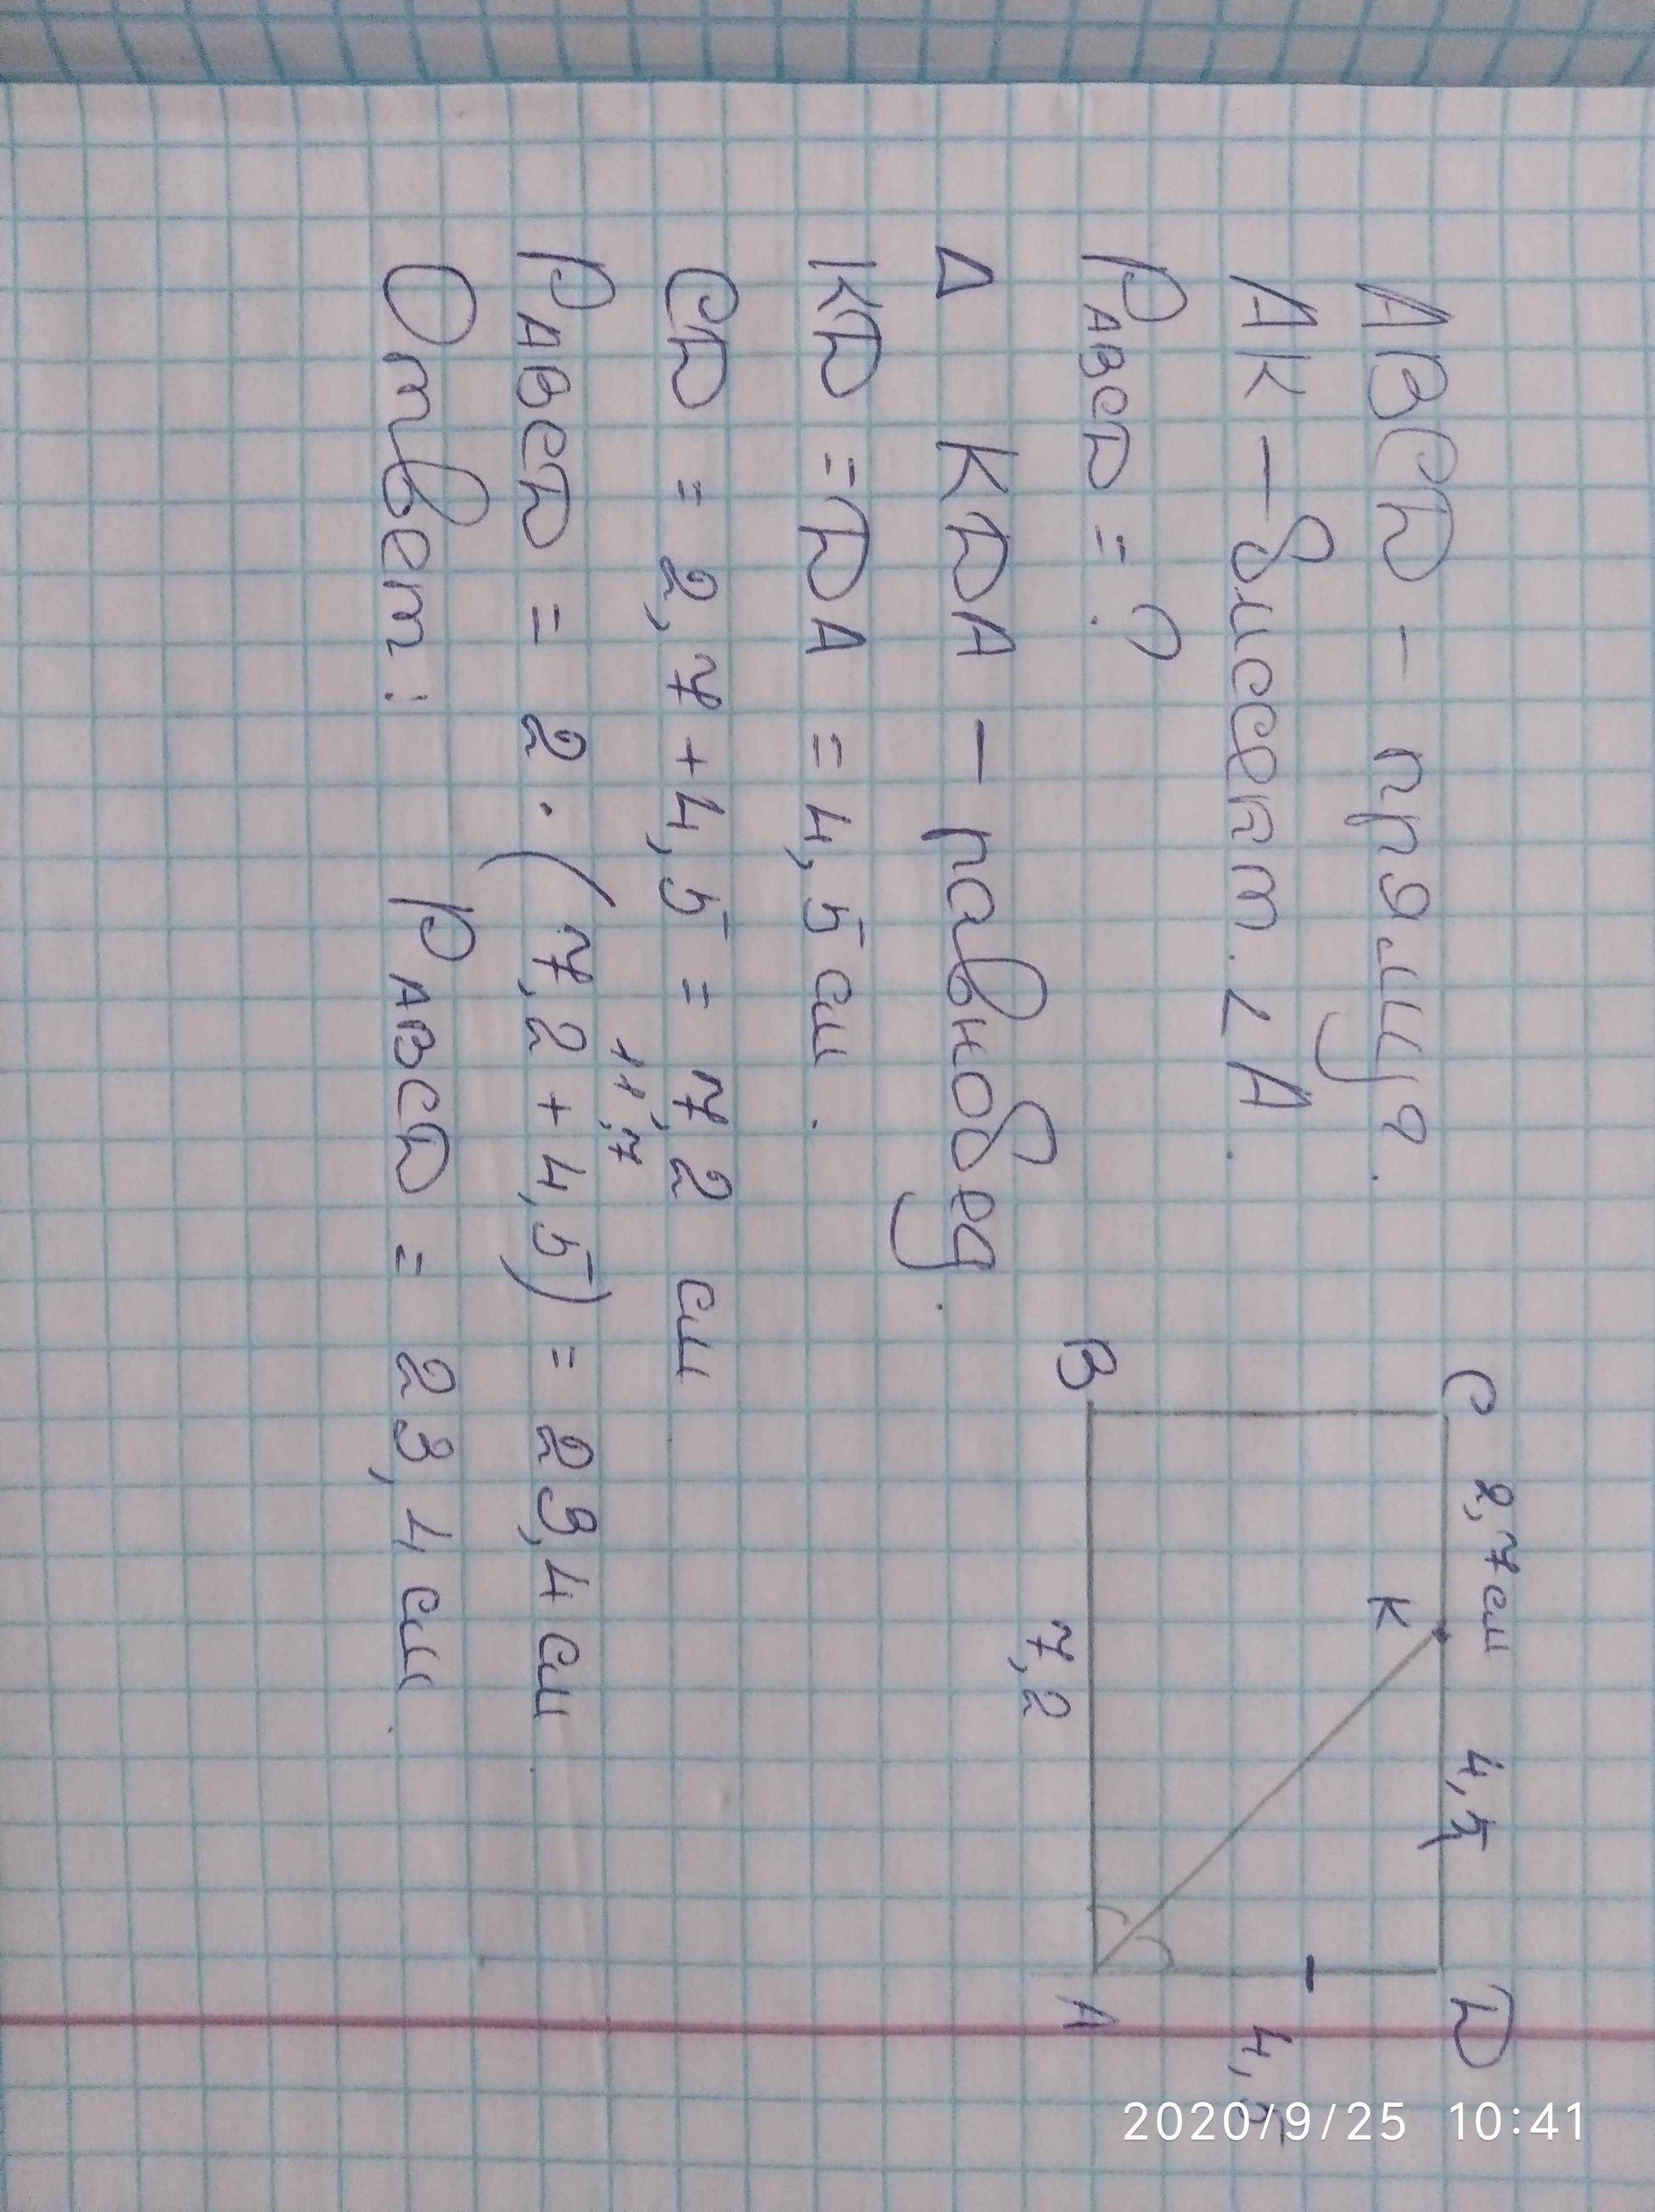 ABCD - прямуг.
AK - биссект. ∠A.
P ABCD = ?
Δ KDA - равнобед.
KD = DA = 4,5 см.
CD = 2,7 + 4,5 = 7,2 см
11,7
P ABCD = 2 · (7,2 + 4,5) = 23,4 см
Ответ: P ABCD = 23,4 см.
C 2,7 см 4,5 D
K
4,5
B A
7,2
2020/9/25 10:41